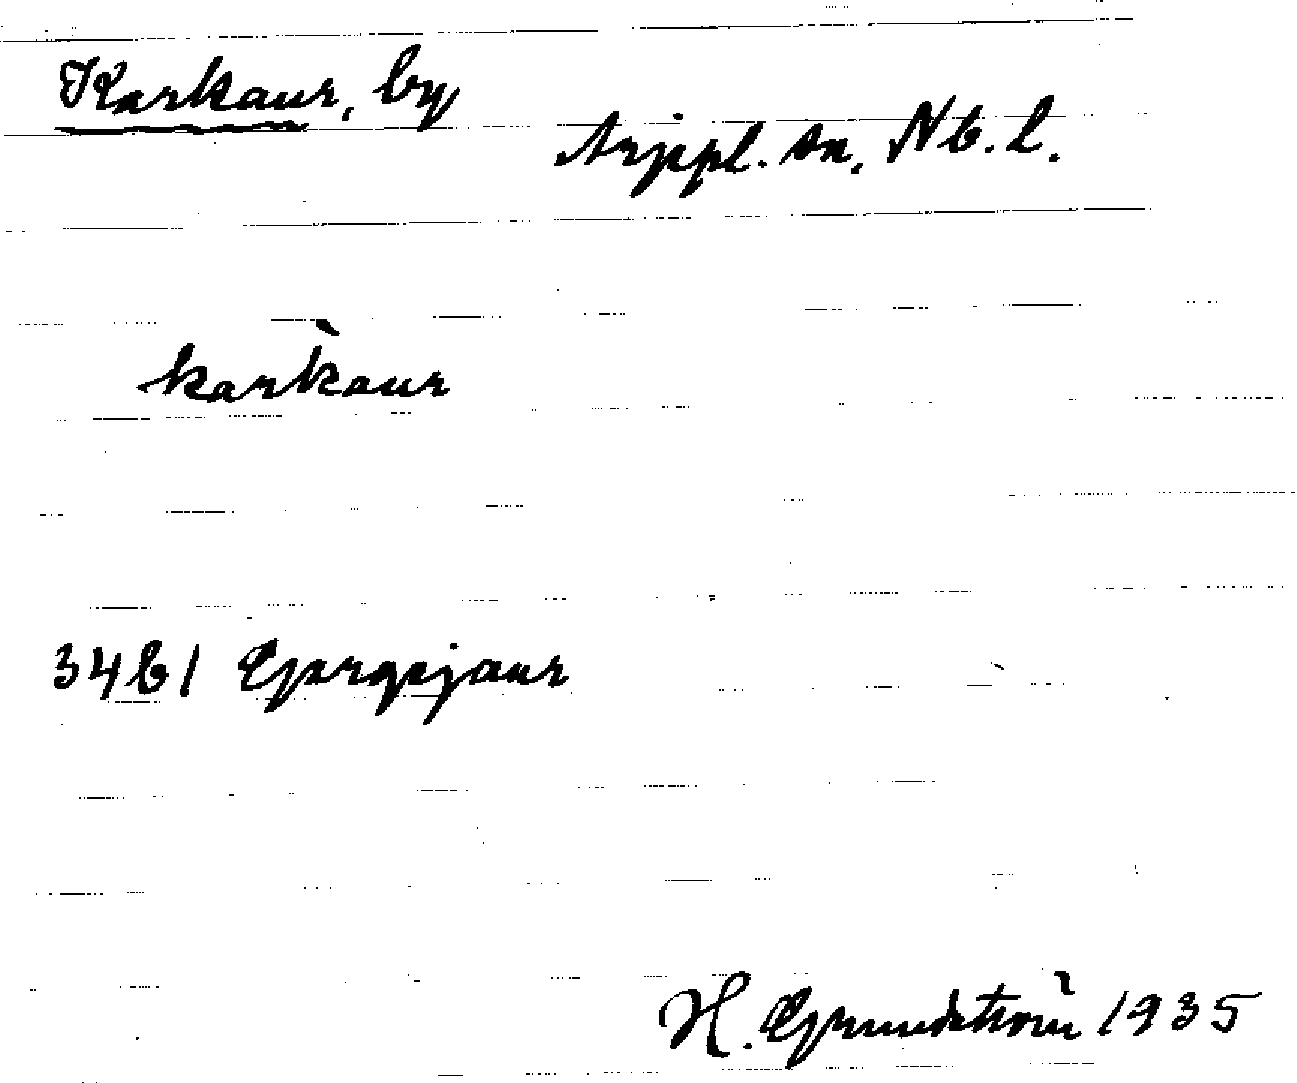 Karkaur, by
Arjepl. sn. Nb. l.
karkaur
3461 Gjergejaur
H. Grundström 1935